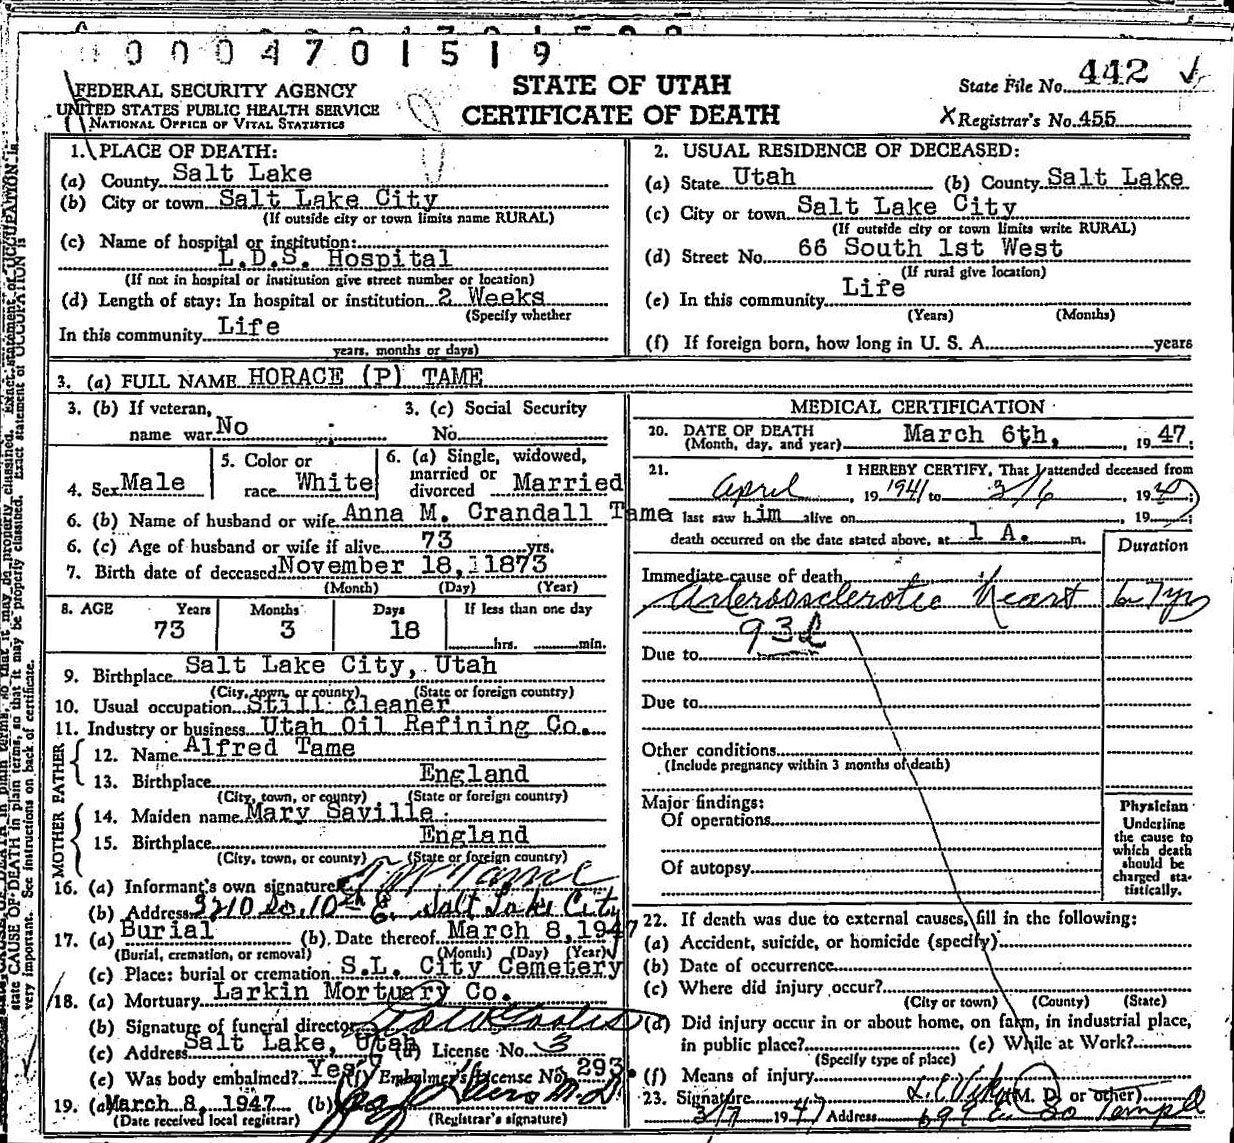 0 0 0 4 7 0 1 5 1 9
FEDERAL SECURITY AGENCY
UNITED STATES PUBLIC HEALTH SERVICE
NATIONAL OFFICE OF VITAL STATISTICS
STATE OF UTAH
CERTIFICATE OF DEATH
State File No. 442
Registrar's No. 455
1. PLACE OF DEATH:
(a) County Salt Lake
(b) City or town Salt Lake City
(If outside city or town limits name RURAL)
(c) Name of hospital or institution:
L.D.S. Hospital
(If not in hospital or institution give street number or location)
(d) Length of stay: In hospital or institution 2 Weeks
(Specify whether
In this community Life
years, months or days)
2. USUAL RESIDENCE OF DECEASED:
(a) State Utah (b) County Salt Lake
(c) City or town Salt Lake City
(If outside city or town limits write RURAL)
(d) Street No. 66 South 1st West
(If rural give location)
(e) In this community Life
(Years) (Months)
(f) If foreign born, how long in U. S. A. years
3. (a) FULL NAME HORACE (P) TAME
3. (b) If veteran, name war No
3. (c) Social Security No.
4. Sex Male
5. Color or race White
6. (a) Single, widowed, married or divorced Married
6. (b) Name of husband or wife Anna M. Crandall Tame
6. (c) Age of husband or wife if alive 73 yrs.
7. Birth date of deceased November 18, 1873
(Month) (Day) (Year)
8. AGE Years Months Days If less than one day
73 3 18 hrs. min.
9. Birthplace Salt Lake City, Utah
(City, town, or county) (State or foreign country)
10. Usual occupation Still cleaner
11. Industry or business Utah Oil Refining Co.
FATHER
12. Name Alfred Tame
13. Birthplace England
(City, town, or county) (State or foreign country)
MOTHER
14. Maiden name Mary Saville
15. Birthplace England
(City, town, or county) (State or foreign country)
16. (a) Informant's own signature Tame
(b) Address 3210 So. 10th E. Salt Lake City
17. (a) Burial (b) Date thereof March 8, 1947
(Burial, cremation, or removal) (Month) (Day) (Year)
(c) Place: burial or cremation S.L. City Cemetery
18. (a) Mortuary Larkin Mortuary Co.
(b) Signature of funeral director
(c) Address Salt Lake, Utah (d) License No. 3
(e) Was body embalmed? Yes (f) Embalmer's License No. 293
19. (a) March 8, 1947 (b) M.D.
(Date received local registrar) (Registrar's signature)
MEDICAL CERTIFICATION
20. DATE OF DEATH
(Month, day, and year) March 6th, 1947;
21. I HEREBY CERTIFY, That I attended deceased from
April, 19 1941 to 3/6, 1947;
I last saw him alive on , 19 ;
death occurred on the date stated above, at 1 A. m.
Duration
Immediate cause of death
Arteriosclerotic Heart 6-7 yrs
93d
Due to
Due to
Other conditions
(Include pregnancy within 3 months of death)
Major findings:
Of operations
Of autopsy
Physician
Underline
the cause to
which death
should be
charged sta-
tistically.
22. If death was due to external causes, fill in the following:
(a) Accident, suicide, or homicide (specify)
(b) Date of occurrence
(c) Where did injury occur?
(City or town) (County) (State)
(d) Did injury occur in or about home, on farm, in industrial place,
in public place? (e) While at Work?
(Specify type of place)
(f) Means of injury
23. Signature (M. D. or other)
3/7 1947 Address 699 E. So Temple